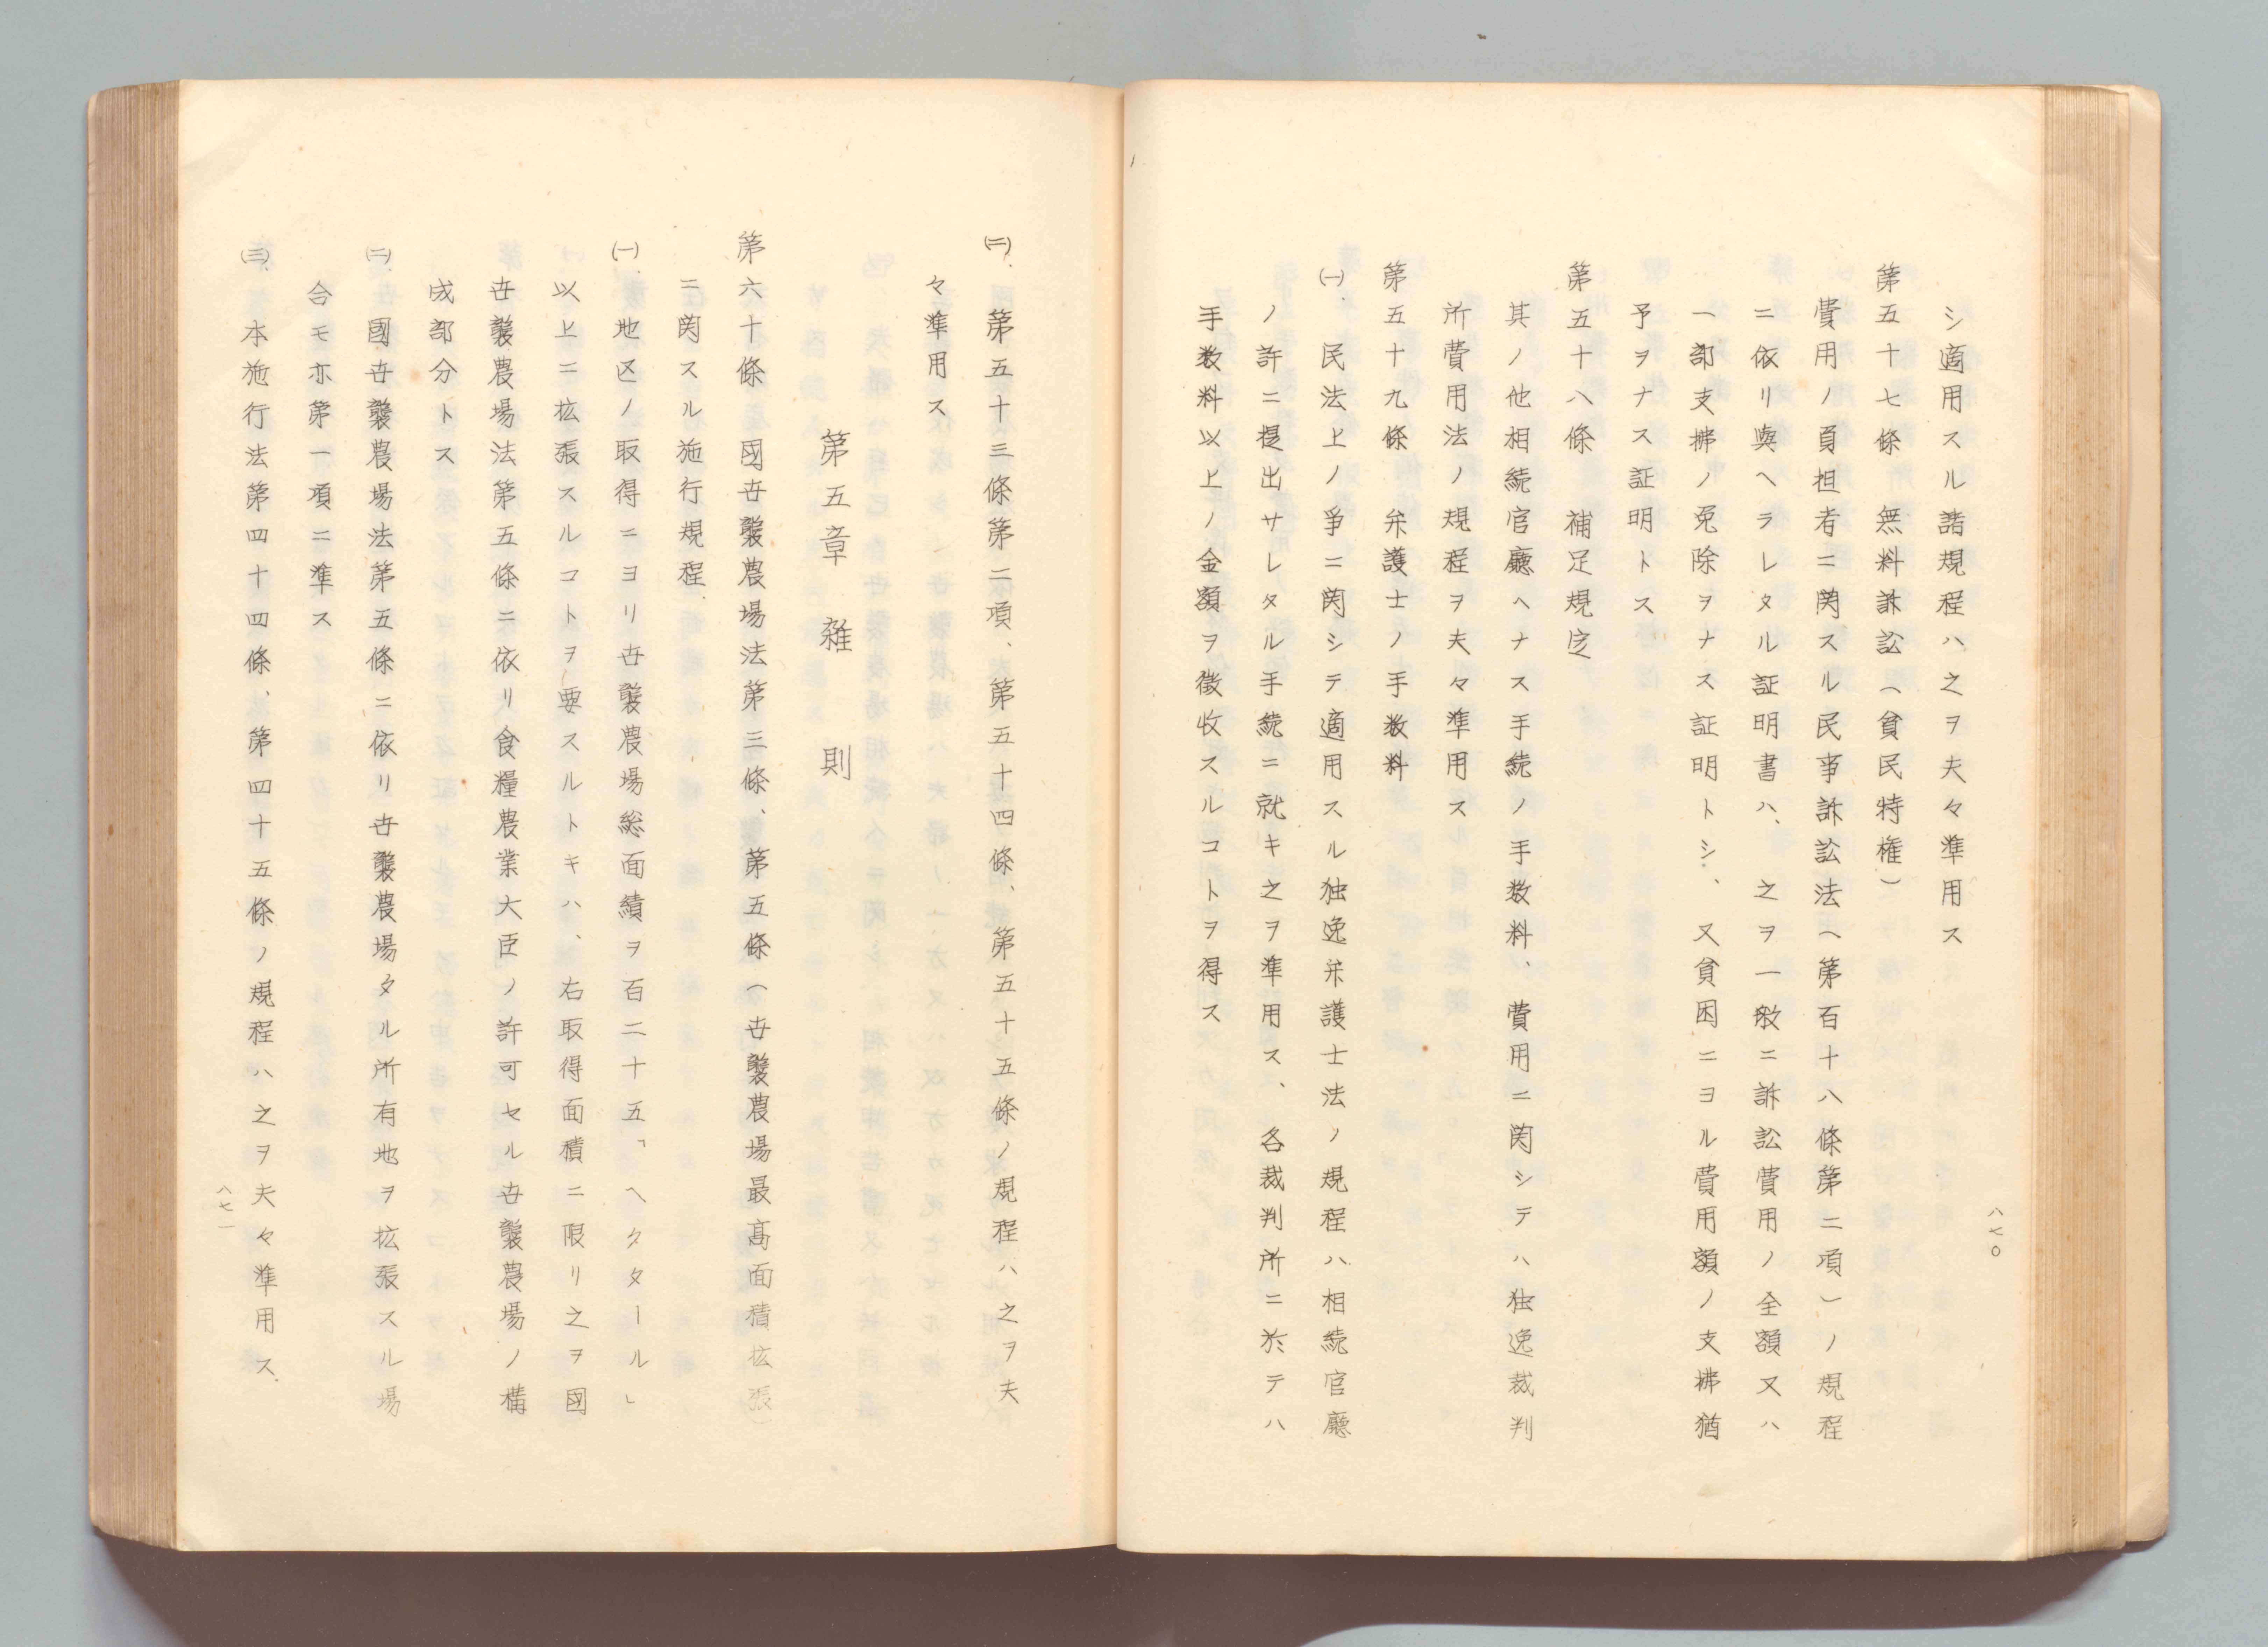 シ適用スル諸規程ハ之ヲ夫々準用ス
第五十七條　無料訴訟（貧民特権）
費用ノ負担者ニ関スル民事訴訟法（第百十八條第二項）ノ規程
ニ依リ與ヘラレタル証明書ハ、之ヲ一般ニ訴訟費用ノ全額又ハ
一部支拂ノ免除ヲナス証明トシ、又貧困ニヨル費用額ノ支拂猶
予ヲナス証明トス
第五十八條　補足規定
其ノ他相続官廳ヘナス手続ノ手数料、費用ニ関シテハ独逸裁判
所費用法ノ規程ヲ夫々準用ス
第五十九條　弁護士ノ手数料
㈠、民法上ノ爭ニ関シテ適用スル独逸弁護士法ノ規程ハ相続官廳
ノ許ニ提出サレタル手続ニ就キ之ヲ準用ス、各裁判所ニ於テハ
手数料以上ノ金額ヲ徴收スルコトヲ得ス
八七〇
㈡、第五十三條第二項、第五十四條、第五十五條ノ規程ハ之ヲ夫
々準用ス
第五章　雑　則
第六十條　國世襲農場法第三條、第五條（世襲農場最高面積拡張）
ニ関スル施行規程
㈠、地区ノ取得ニヨリ世襲農場総面績ヲ百二十五「ヘクタール」
以上ニ拡張スルコトヲ要スルトキハ、右取得面積ニ限リ之ヲ國
世襲農場法第五條ニ依リ食糧農業大臣ノ許可セル世襲農場ノ構
成部分トス
㈡、國世襲農場法第五條ニ依リ世襲農場タル所有地ヲ拡張スル場
合モ亦第一項ニ準ス
㈢、本施行法第四十四條、第四十五條ノ規程ハ之ヲ夫々準用ス
八七一